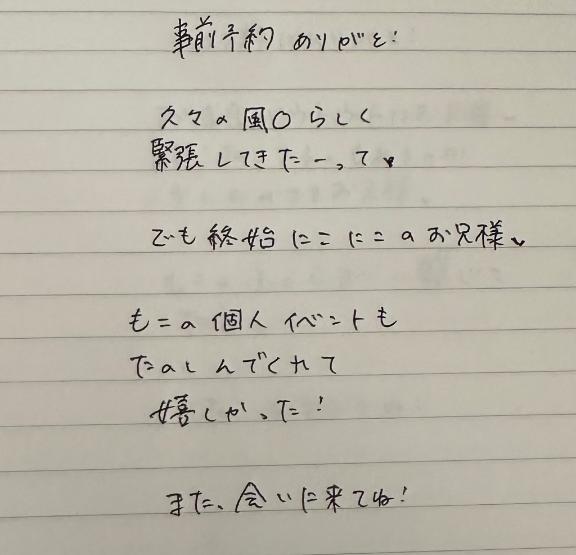 事前予約 ありがと!
久々の風〇らしく
緊張してきたーって♥
でも終始にこにこのお兄様♥
もこの個人イベントも
たのしんでくれて
嬉しかった!
また、会いに来てね!